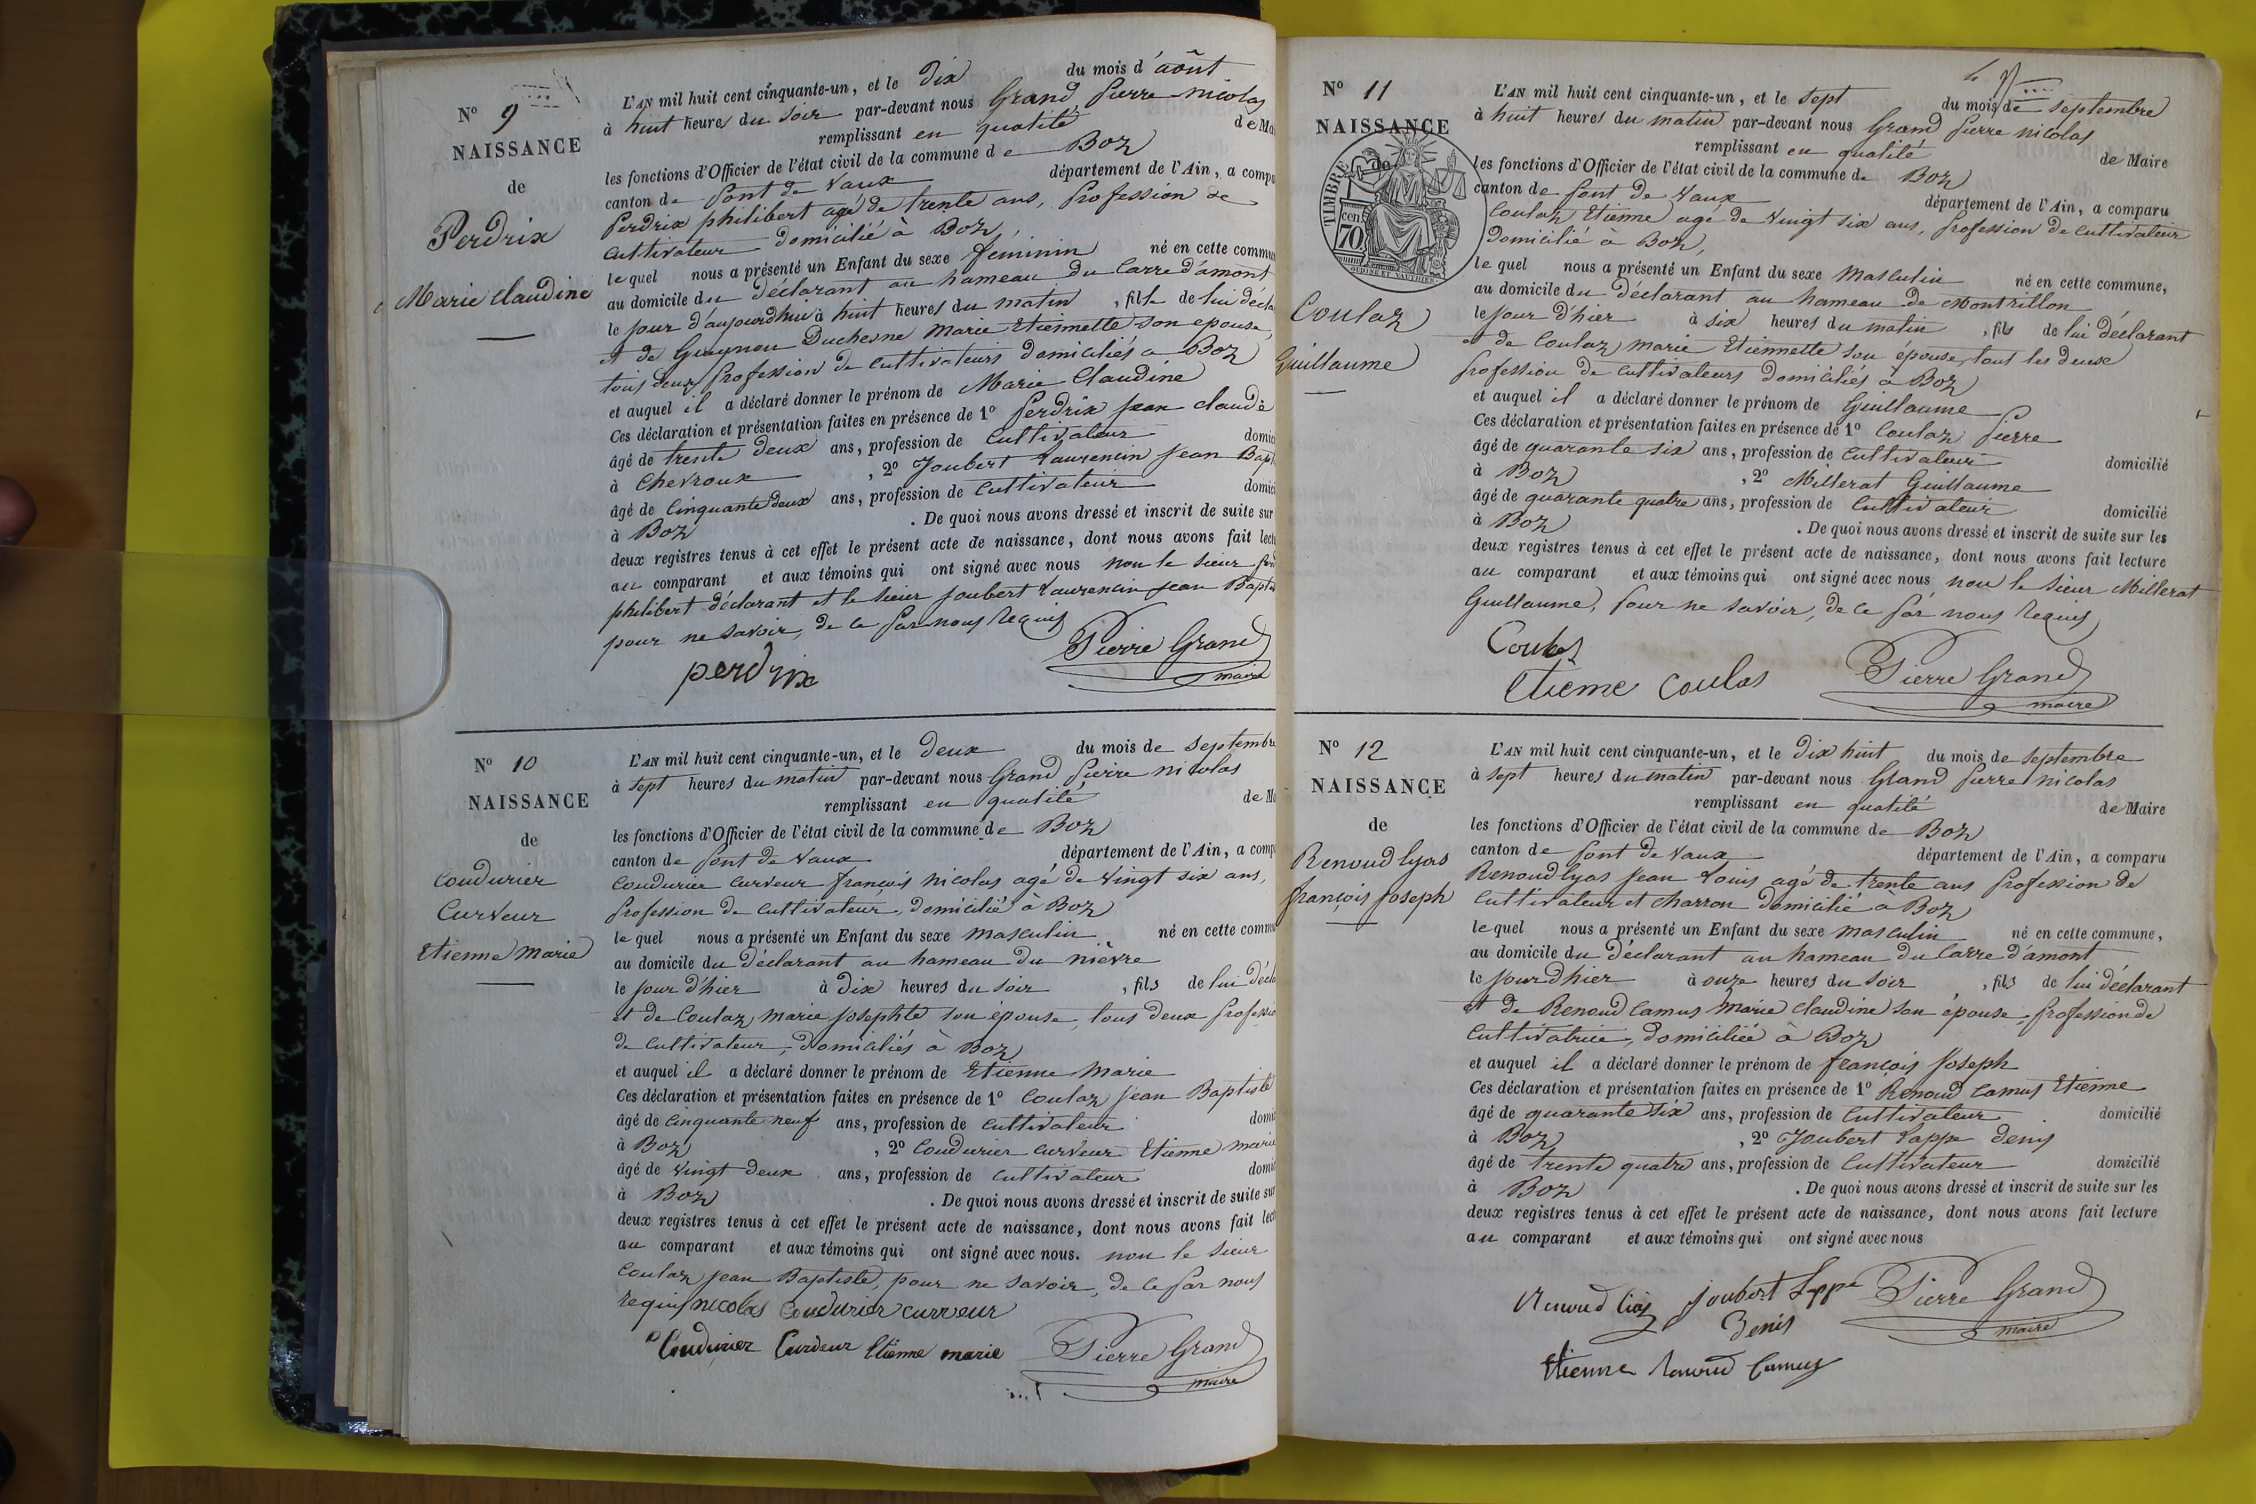 N° 9
NAISSANCE
de
Perdrix
Marie Claudine
L'AN mil huit cent cinquante-un, et le dix du mois d'août
à huit heures du soir par-devant nous Grand pierre nicolas
remplissant en qualité de Ma
les fonctions d'Officier de l'état civil de la commune de Boz
canton de pont de vaux département de l'Ain, a compa
Perdrix philibert agé de trente ans, profession de
cultivateur domicilié à Boz
le quel nous a présenté un Enfant du sexe féminin né en cette commun
au domicile du déclarant au hameau du Carre d'amont
le jour d'aujourdhui à huit heures du matin, fille de lui décla
et de Guynon Duchesne Marie Etiennette son epouse,
tous deux profession de cultivateurs domiciliés a Boz
et auquel il a déclaré donner le prénom de Marie Claudine
Ces déclaration et présentation faites en présence de 1° perdrix jean claude
âgé de trente deux ans, profession de cultivateur domici
à Chevroux, 2° Joubert Laurencin jean Bapt
âgé de cinquante deux ans, profession de cultivateur domici
à Boz. De quoi nous avons dressé et inscrit de suite sur
deux registres tenus à cet effet le présent acte de naissance, dont nous avons fait lect
au comparant et aux témoins qui ont signé avec nous non le sieur
philibert déclarant et le sieur joubert Laurencin jean Baptis
pour ne savoir, de ce par nous requis
perdrix
Pierre Grand
maire
N° 10
NAISSANCE
de
Coudurier
Curveur
Etienne Marie
L'AN mil huit cent cinquante-un, et le deux du mois de septembre
à sept heures du matin par-devant nous Grand pierre nicolas
remplissant en qualité de Ma
les fonctions d'Officier de l'état civil de la commune de Boz
canton de pont de vaux département de l'Ain, a comp
Coudurier curveur françois nicolas agé de vingt six ans,
profession de cultivateur, domicilié à Boz
le quel nous a présenté un Enfant du sexe masculin né en cette commu
au domicile du déclarant au hameau du nièvre
le jour d'hier à dix heures du soir, fils de lui décla
et de Coulaz marie josephte son épouse, tous deux professio
de cultivateur, domiciliés à Boz
et auquel il a déclaré donner le prénom de Etienne Marie
Ces déclaration et présentation faites en présence de 1° Coulaz jean Baptiste
âgé de cinquante neuf ans, profession de cultivateur domic
à Boz, 2° Coudurier curveur Etienne marie
âgé de vingt deux ans, profession de cultivateur domic
à Boz. De quoi nous avons dressé et inscrit de suite sur
deux registres tenus à cet effet le présent acte de naissance, dont nous avons fait lect
au comparant et aux témoins qui ont signé avec nous. non le sieur
Coulaz jean Baptiste, pour ne savoir, de ce par nous
requis nicolas Coudurier curveur
Coudurier Curveur Etienne marie
Pierre Grand
maire
N° 11
NAISSANCE
de
TIMBRE
70 cen
OUDINÉ ET VAUTHIER
Coulaz
Guillaume
L'AN mil huit cent cinquante-un, et le sept du mois de septembre
à huit heures du matin par-devant nous Grand pierre nicolas
remplissant en qualité de Maire
les fonctions d'Officier de l'état civil de la commune de Boz
canton de pont de vaux département de l'Ain, a comparu
Coulaz Etienne agé de vingt six ans, profession de cultivateur
domicilié à Boz,
le quel nous a présenté un Enfant du sexe masculin né en cette commune,
au domicile du déclarant au hameau de Montrillon
le jour d'hier à six heures du matin, fils de lui déclarant
et de Coulaz marie Etiennette son épouse, tout les deux
profession de cultivateurs domiciliés à Boz
et auquel il a déclaré donner le prénom de Guillaume
Ces déclaration et présentation faites en présence de 1° Coulaz pierre
âgé de quarante six ans, profession de cultivateur domicilié
à Boz, 2° Millerat Guillaume
âgé de quarante quatre ans, profession de cultivateur domicilié
à Boz. De quoi nous avons dressé et inscrit de suite sur les
deux registres tenus à cet effet le présent acte de naissance, dont nous avons fait lecture
au comparant et aux témoins qui ont signé avec nous non le sieur Millerat
Guillaume, pour ne savoir, de ce par nous requis
Etienne Coulas
Pierre Grand
maire
N° 12
NAISSANCE
de
Renoud lyas
françois joseph
L'AN mil huit cent cinquante-un, et le dix huit du mois de septembre
à sept heures du matin par-devant nous Grand pierre nicolas
remplissant en qualité de Maire
les fonctions d'Officier de l'état civil de la commune de Boz
canton de pont de vaux département de l'Ain, a comparu
Renoud lyas jean Louis agé de trente ans profession de
cultivateur et charron domicilié à Boz
le quel nous a présenté un Enfant du sexe masculin né en cette commune,
au domicile du déclarant au hameau du Carre d'amont
le jour d'hier à onze heures du soir, fils de lui déclarant
et de Renoud Camus Marie claudine son épouse, profession de
cultivatrice, domiciliée à Boz
et auquel il a déclaré donner le prénom de françois joseph
Ces déclaration et présentation faites en présence de 1° Renoud Camus Etienne
âgé de quarante six ans, profession de cultivateur domicilié
à Boz, 2° Joubert Lappe denis
âgé de trente quatre ans, profession de cultivateur domicilié
à Boz. De quoi nous avons dressé et inscrit de suite sur les
deux registres tenus à cet effet le présent acte de naissance, dont nous avons fait lecture
au comparant et aux témoins qui ont signé avec nous
joubert
Denis
Pierre Grand
maire
Etienne Camus